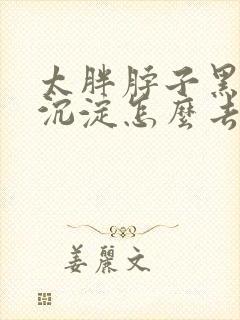 太胖脖子黑
沉淀怎麼去
姜麗文